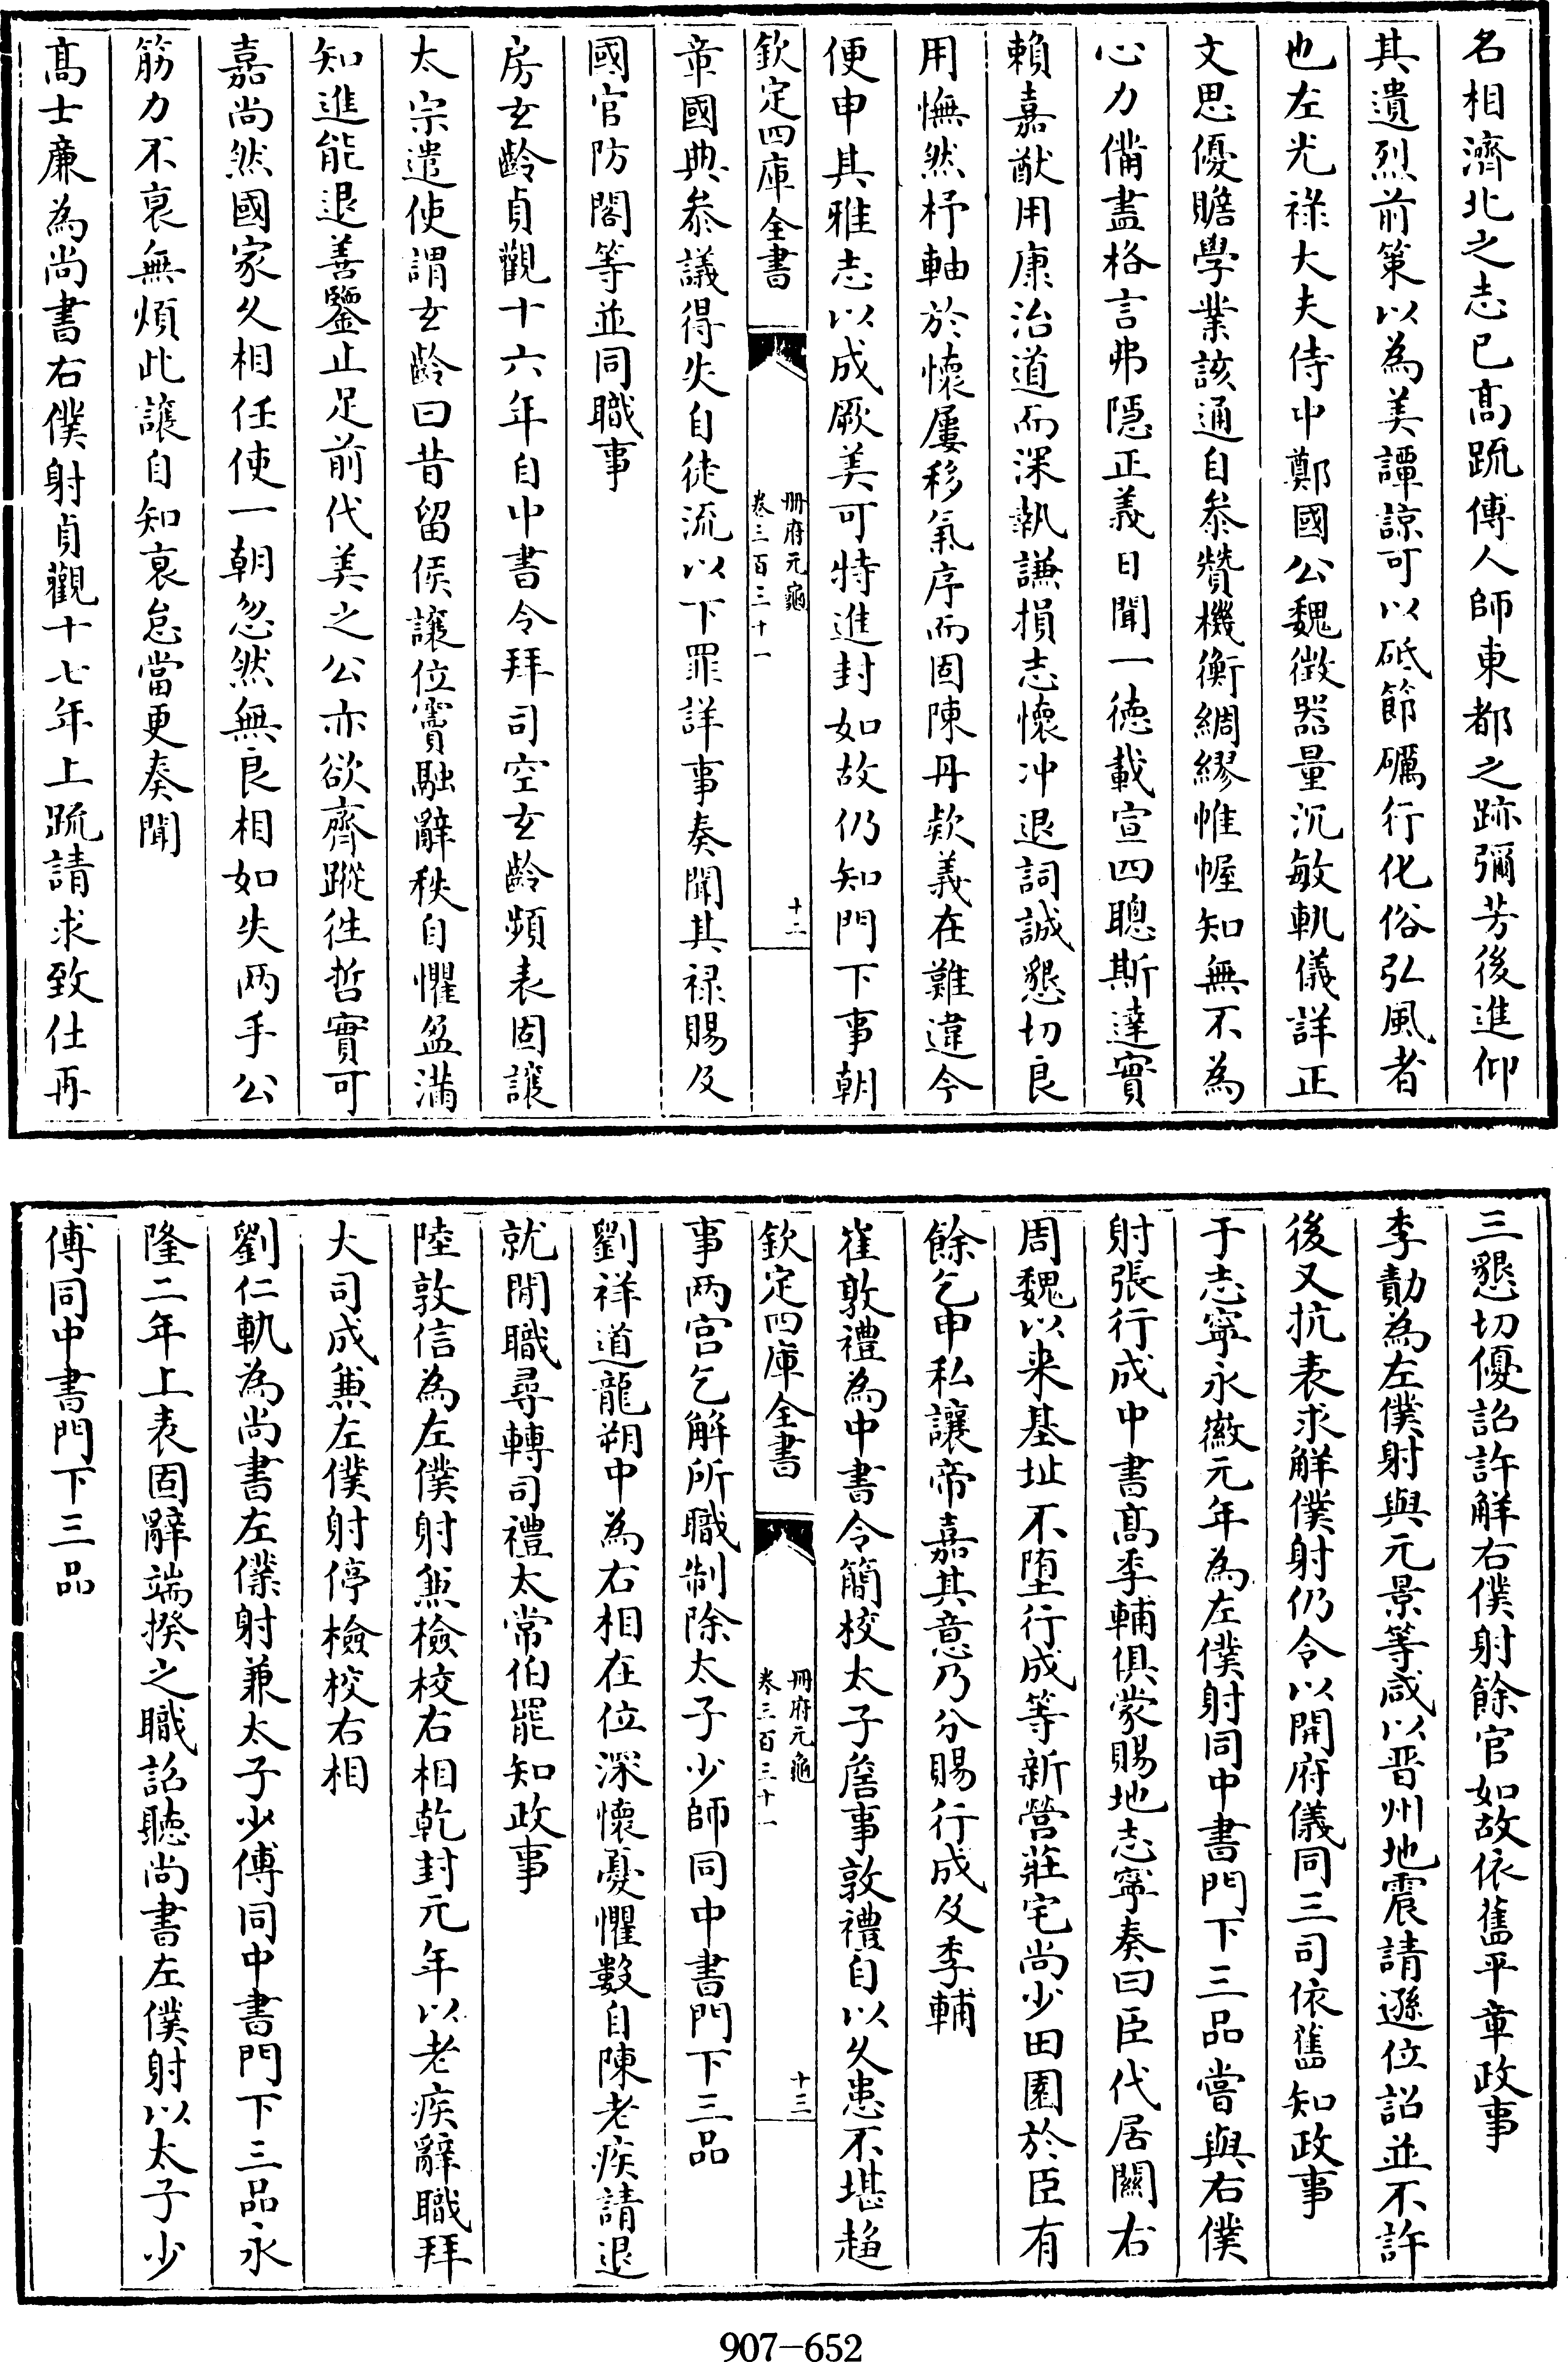 名相濟北之志已髙疏傅人師東都之跡彌芳後進仰
其遺烈前䇿以為美譚諒可以砥節礪行化俗弘風者
也左光祿大夫侍中鄭國公魏徴器量沉敏軌儀詳正
文思優贍學業該通自叅贊機衡綢繆帷幄知無不為
心力備盡格言弗隱正義日聞一徳載宣四聰斯達實
賴嘉猷用康治道而深執謙損志懷冲退詞誠懇切良
用憮然杼軸於懷屢移氣序而固陳丹欵義在難違今
便申其雅志以成厥美可特進封如故仍知門下事朝
欽定四庫全書
冊府元龜
卷三百三十一
十二
章國典叅議得失自徒流以下罪詳事奏聞其禄賜及
國官防閤等並同職事
房玄齡貞觀十六年自中書令拜司空玄齡頻表固讓
太宗遣使謂玄齡曰昔留侯讓位竇融辭秩自懼盈滿
知進能退善鑒止足前代美之公亦欲齊蹤徃哲實可
嘉尚然國家久相任使一朝忽然無良相如失两手公
筋力不衰無煩此讓自知衰怠當更奏聞
髙士廉為尚書右僕射貞觀十七年上疏請求致仕再
三懇切優詔許觧右僕射餘官如故依舊平章政事
李勣為左僕射與元景等咸以晋州地震請遜位詔並不許
後又抗表求觧僕射仍令以開府儀同三司依舊知政事
于志寜永徽元年為左僕射同中書門下三品嘗與右僕
射張行成中書髙季輔俱蒙賜地志寜奏曰臣代居關右
周魏以来基址不堕行成等新營莊宅尚少田園於臣有
餘乞申私讓帝嘉其意乃分賜行成及季輔
崔敦禮為中書令簡校太子詹事敦禮自以久患不堪趨
欽定四庫全書
冊府元龜
卷三百三十一
十三
事两宫乞解所職制除太子少師同中書門下三品
劉祥道龍朔中為右相在位深懷憂懼數自陳老疾請退
就閒職尋轉司禮太常伯罷知政事
陸敦信為左僕射兼檢校右相乾封元年以老疾辭職拜
大司成兼左僕射停檢校右相
劉仁軌為尚書左僕射兼太子少傅同中書門下三品永
隆二年上表固辭端揆之職詔聽尚書左僕射以太子少
傅同中書門下三品
907-652